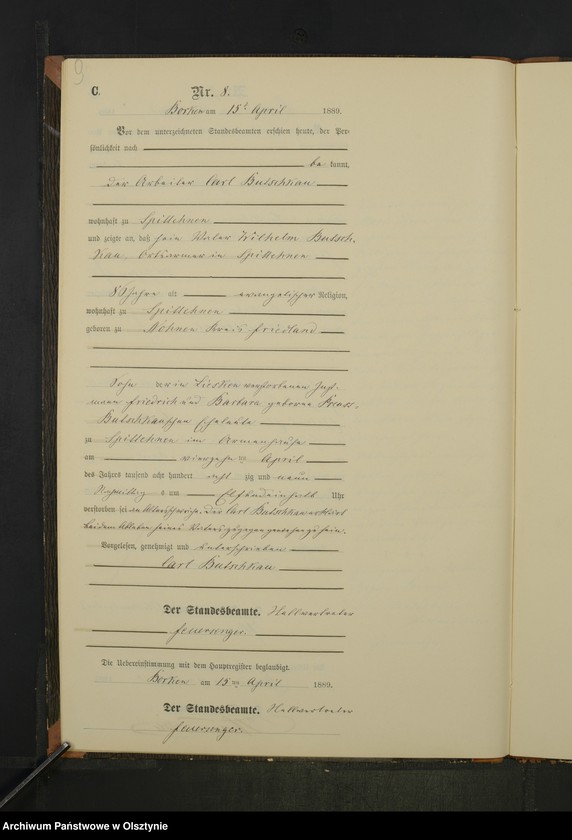 9
C.
Nr. 8.
Borken am 15t April 1889.
Vor dem unterzeichneten Standesbeamten erschien heute, der Per-
sönlichkeit nach
be kannt,
der Arbeiter Carl Butschkau
wohnhaft zu Spittehnen
und zeigte an, daß sein Vater Wilhelm Butsch-
kau Ortsarmer in Spittehnen
80 Jahre alt evangelischer Religion,
wohnhaft zu Spittehnen
geboren zu Kreis Friedland
Sohn der in verstorbenen Inst-
mann Friedrich und Barbara geborne
Butschkauschen Eheleute
zu Spittehnen im Armenhause
am vierzehnten April
des Jahres tausend acht hundert acht zig und neun
Nachmittag s um Elfundeinhalb Uhr
verstorben sei an Altersschwäche. der Carl Butschkau erklärt
bei dem Ableben seines Vaters zugegen gewesen zu sein.
Vorgelesen, genehmigt und unterschrieben
Carl Butschkau
Der Standesbeamte. Stellvertreter
Feuersenger.
Die Uebereinstimmung mit dem Hauptregister beglaubigt.
Borken am 15ten April 1889.
Der Standesbeamte. Stellvertreter
Feuersenger.
Archiwum Państwowe w Olsztynie